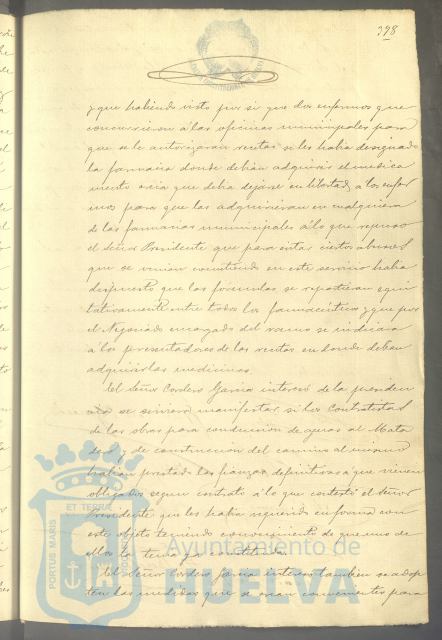 398
y que habiendo visto por si que dos enfermos que
concurrieron á las oficinas municipales para
que se le autorizaran recetas se les habia designado
la farmacia donde debian adquirir el medica
mento creia que debia dejarse en libertad a los enfer
mos para que las adquirieran en cualquiera
de las farmacias municipales á lo que repuso
el Señor Presidente que para evitar ciertos abusos
que se venian cometiendo en este servicio habia
dispuesto que las fórmulas se repartieran equi
tativamente entre todos los farmacéuticos y que por
el Negociado encargado del ramo se indicara
a los presentadores de las recetas en donde debian
adquirir las medicinas.
El Señor Cordero Garcia interesó de la presiden
cia se sirviera manifestar si los contratistas
de las obras para conduccion de aguas al Mata
dero y de construccion del camino al mismo
habian prestado las fianzas definitivas a que vienen
obligados segun contrato á lo que contestó el Señor
Presidente que les habia requerido en forma con
este objeto teniendo conocimiento de que uno de
ellos la tenia ya constituida.
El Señor Cordero Garcia interesó tambien se adop
ten las medidas que se crean convenientes para
PORTUS MARIS
ET TERRÆ
CUSTODIA
Ayuntamiento de
HUELVA